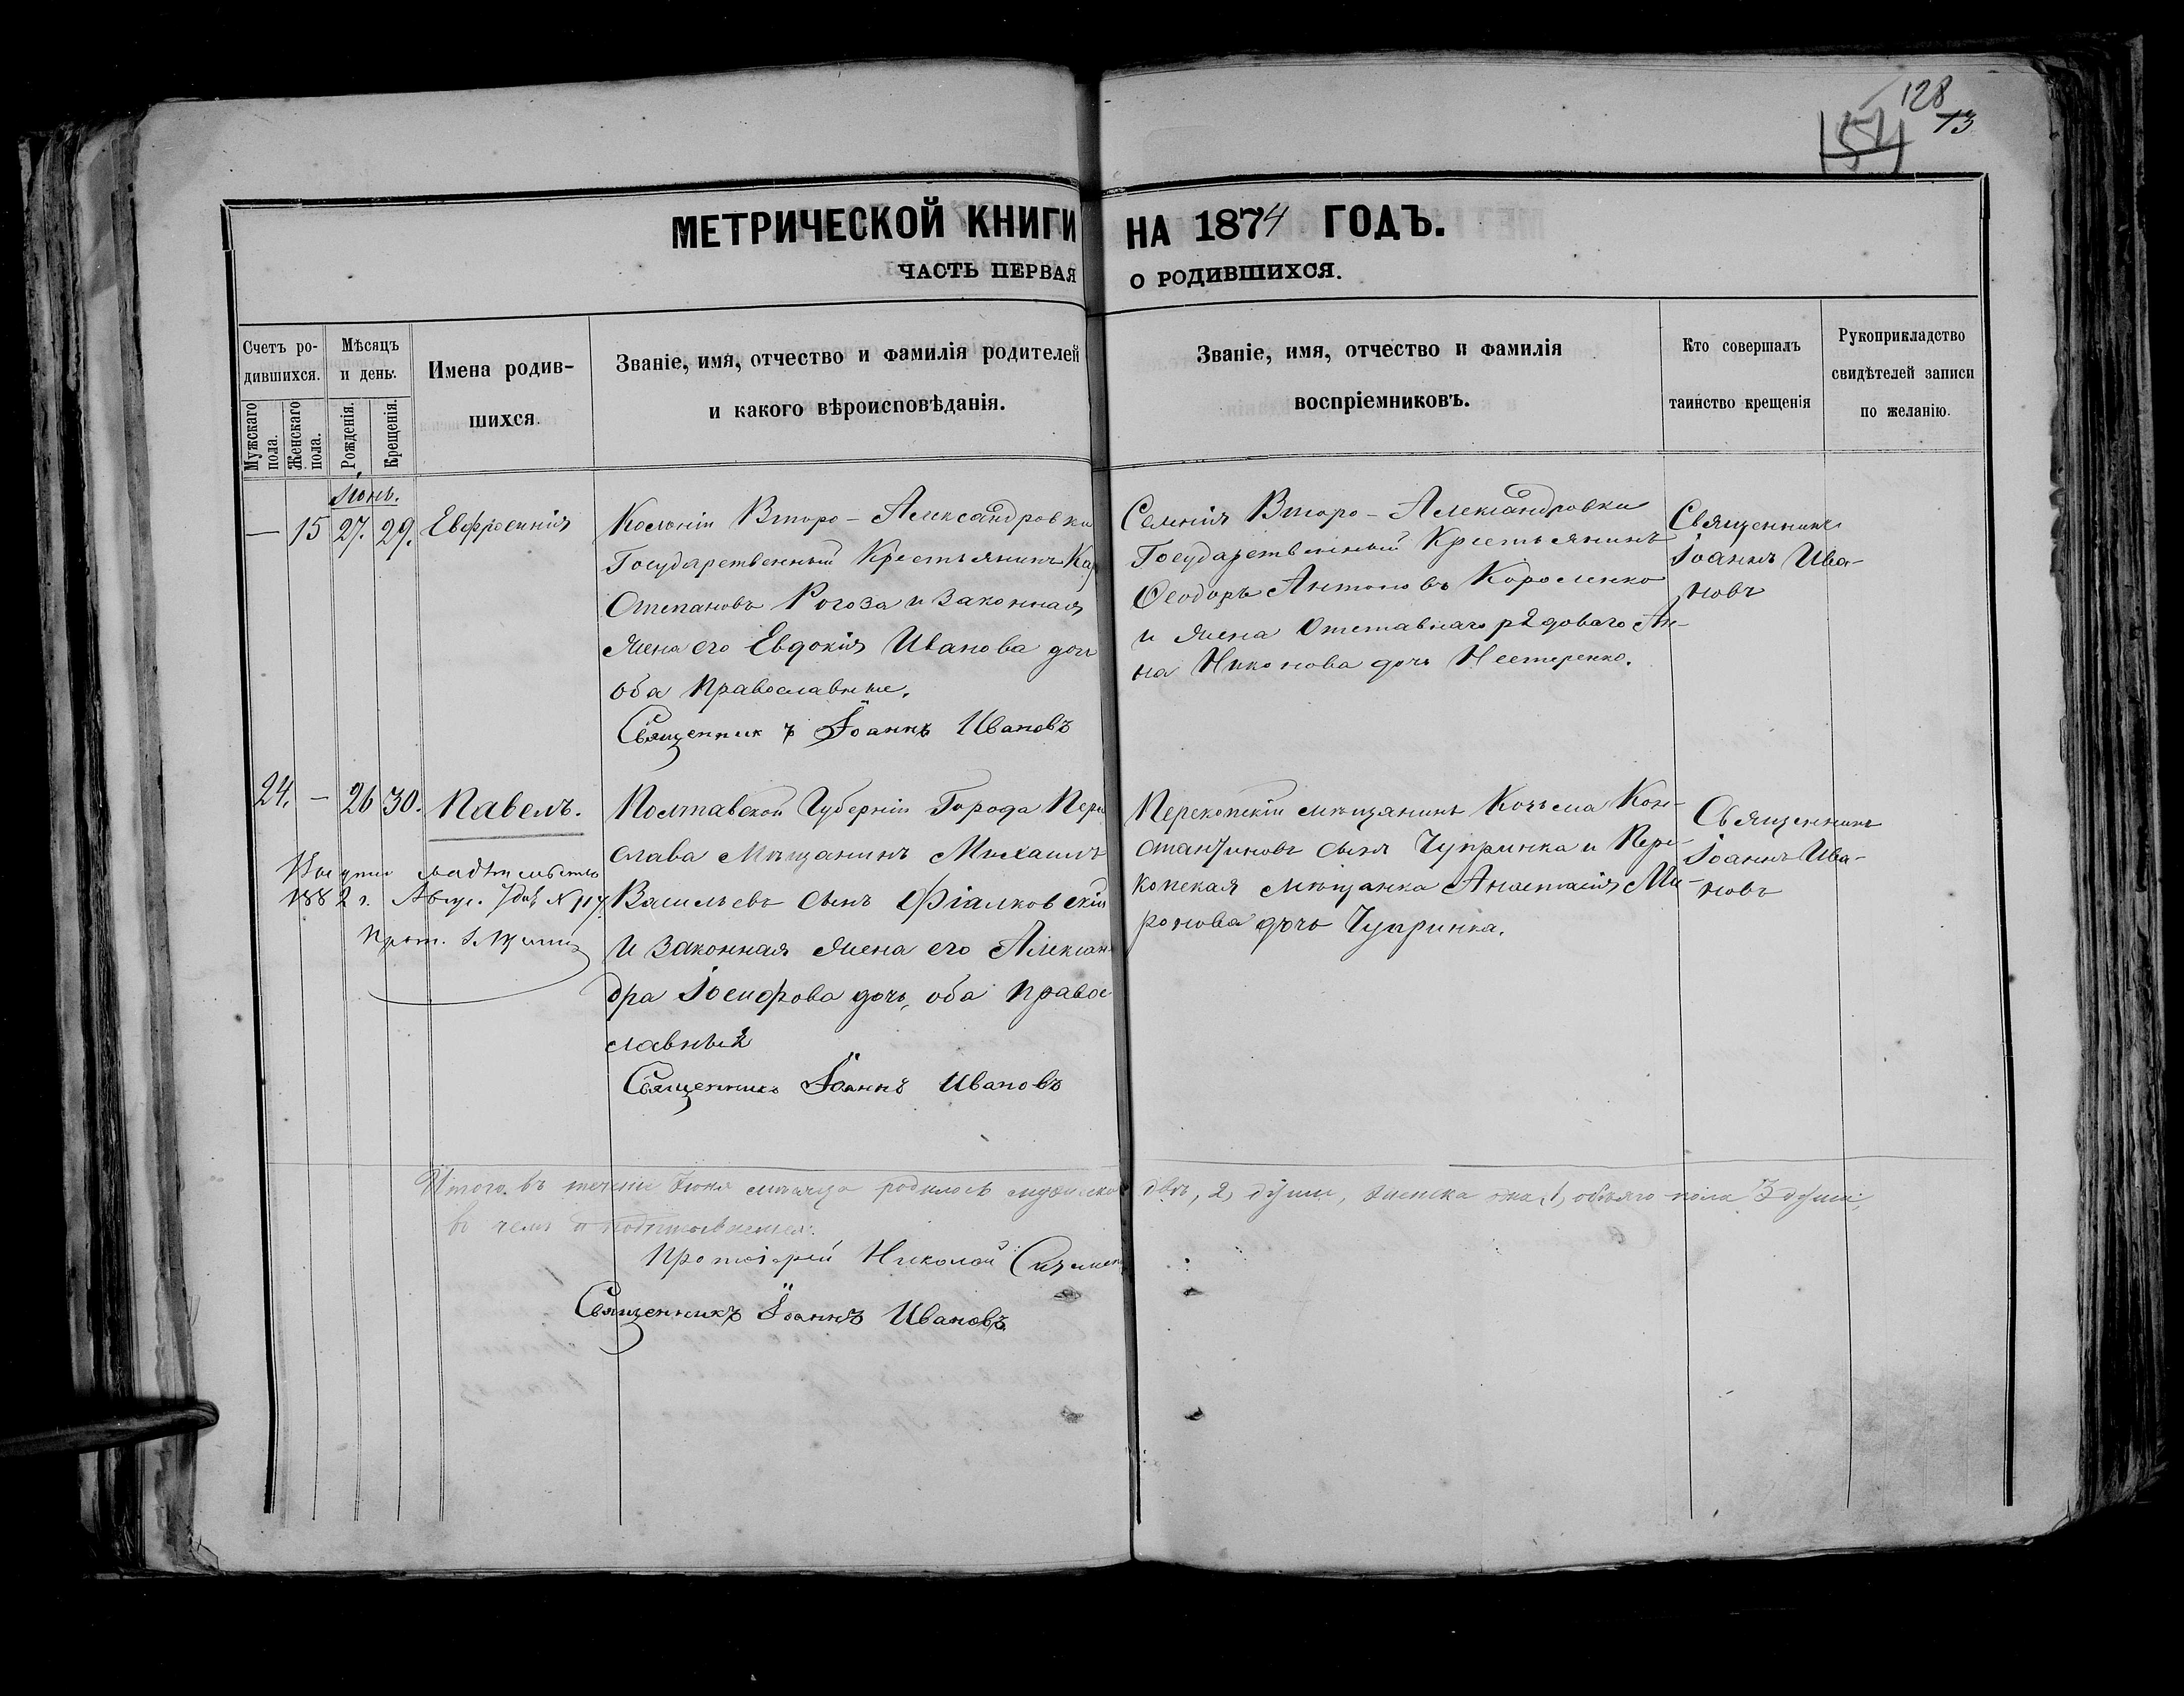 128
154 13
МЕТРИЧЕСКОЙ КНИГИ НА 1874 ГОДЪ.
ЧАСТЬ ПЕРВАЯ О РОДИВШИХСЯ.
Счетъ ро-
дившихся.
Мужскаго пола.
Женскаго пола.
Мѣсяцъ
и день.
Рожденія.
Крещенія.
Имена родив-
шихся.
Званіе, имя, отчество и фамилія родителей
и какого вѣроисповѣданія.
Званіе, имя, отчество и фамилія
воспріемниковъ.
Кто совершалъ
таинство крещенія
Рукоприкладство
свидѣтелей записи
по желанію.
Іюнь.
— 15 27. 29. Евфросинія
Колоніи Второ-Александровки
Государственный Крестьянинъ
Степановъ Рогоза и законная
жена его Евдокія Иванова доч
оба Православные.
Священникъ Іоаннъ Ивановъ
Второ-Александровки
Государственный Крестьянинъ
Ѳеодоръ Антоновъ Короленко
и жена отставнаго рядоваго Ан-
на Никонова дочь Нестеренко.
Священникъ
Іоаннъ Ива-
новъ
24. — 26 30. Павелъ.
1882 г. Авгус.
Прот.
Полтавской Губерніи Города Пере
слава Мѣщанинъ Михаилъ
Васильевъ сынъ Фіалковскій
и законная жена его Алексан
дра Іосифова дочь, оба право
славные
Священникъ Іоаннъ Ивановъ
Перекопскій мѣщанинъ Козьма Кон-
стантиновъ сынъ Чупринка и Пере-
копская мѣщанка Анастасія Ми-
ронова дочь Чупринка.
Священникъ
Іоаннъ Ива-
новъ
Итого въ теченіе Іюня мѣсяца родилось мужеска двѣ, 2, души, женска одна, 1, обоего пола 3 души,
в чемъ и подписываемся:
Протоіерей Николай
Священникъ Іоаннъ Ивановъ.